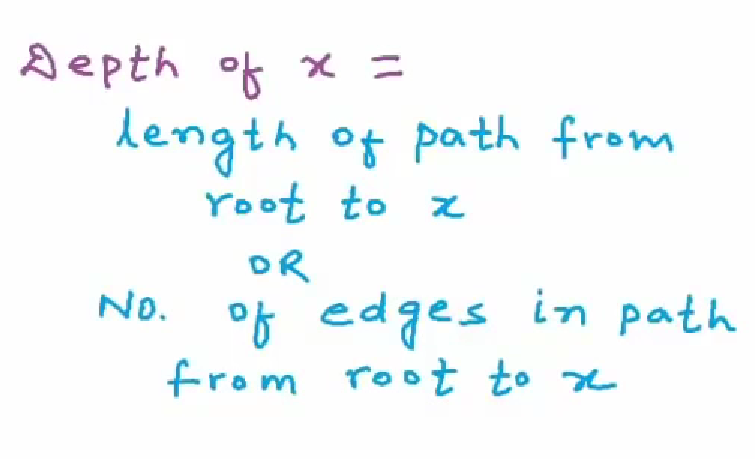 Depth of x =
length of path from
root to x
OR
No. of edges in path
from root to x